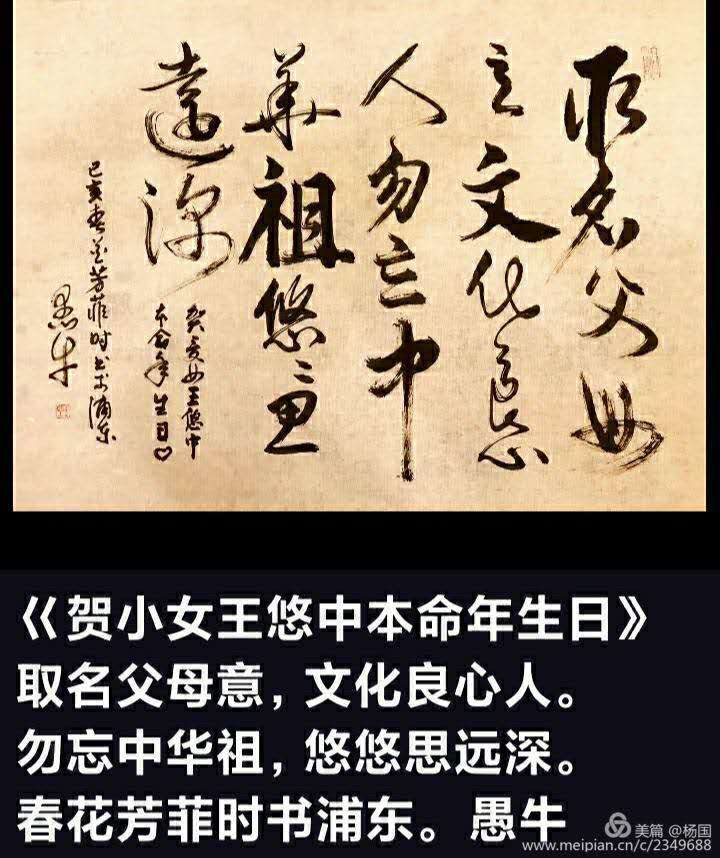 取名父母
意文化良心
人勿忘中
華祖悠〻思
遠深
癸亥女王悠中
本命年生日♡
己亥春花芳菲时书于浦东
愚牛
《贺小女王悠中本命年生日》
取名父母意，文化良心人。
勿忘中华祖，悠悠思远深。
春花芳菲时书浦东。愚牛
美篇 @杨国
www.meipian.cn/c/2349688